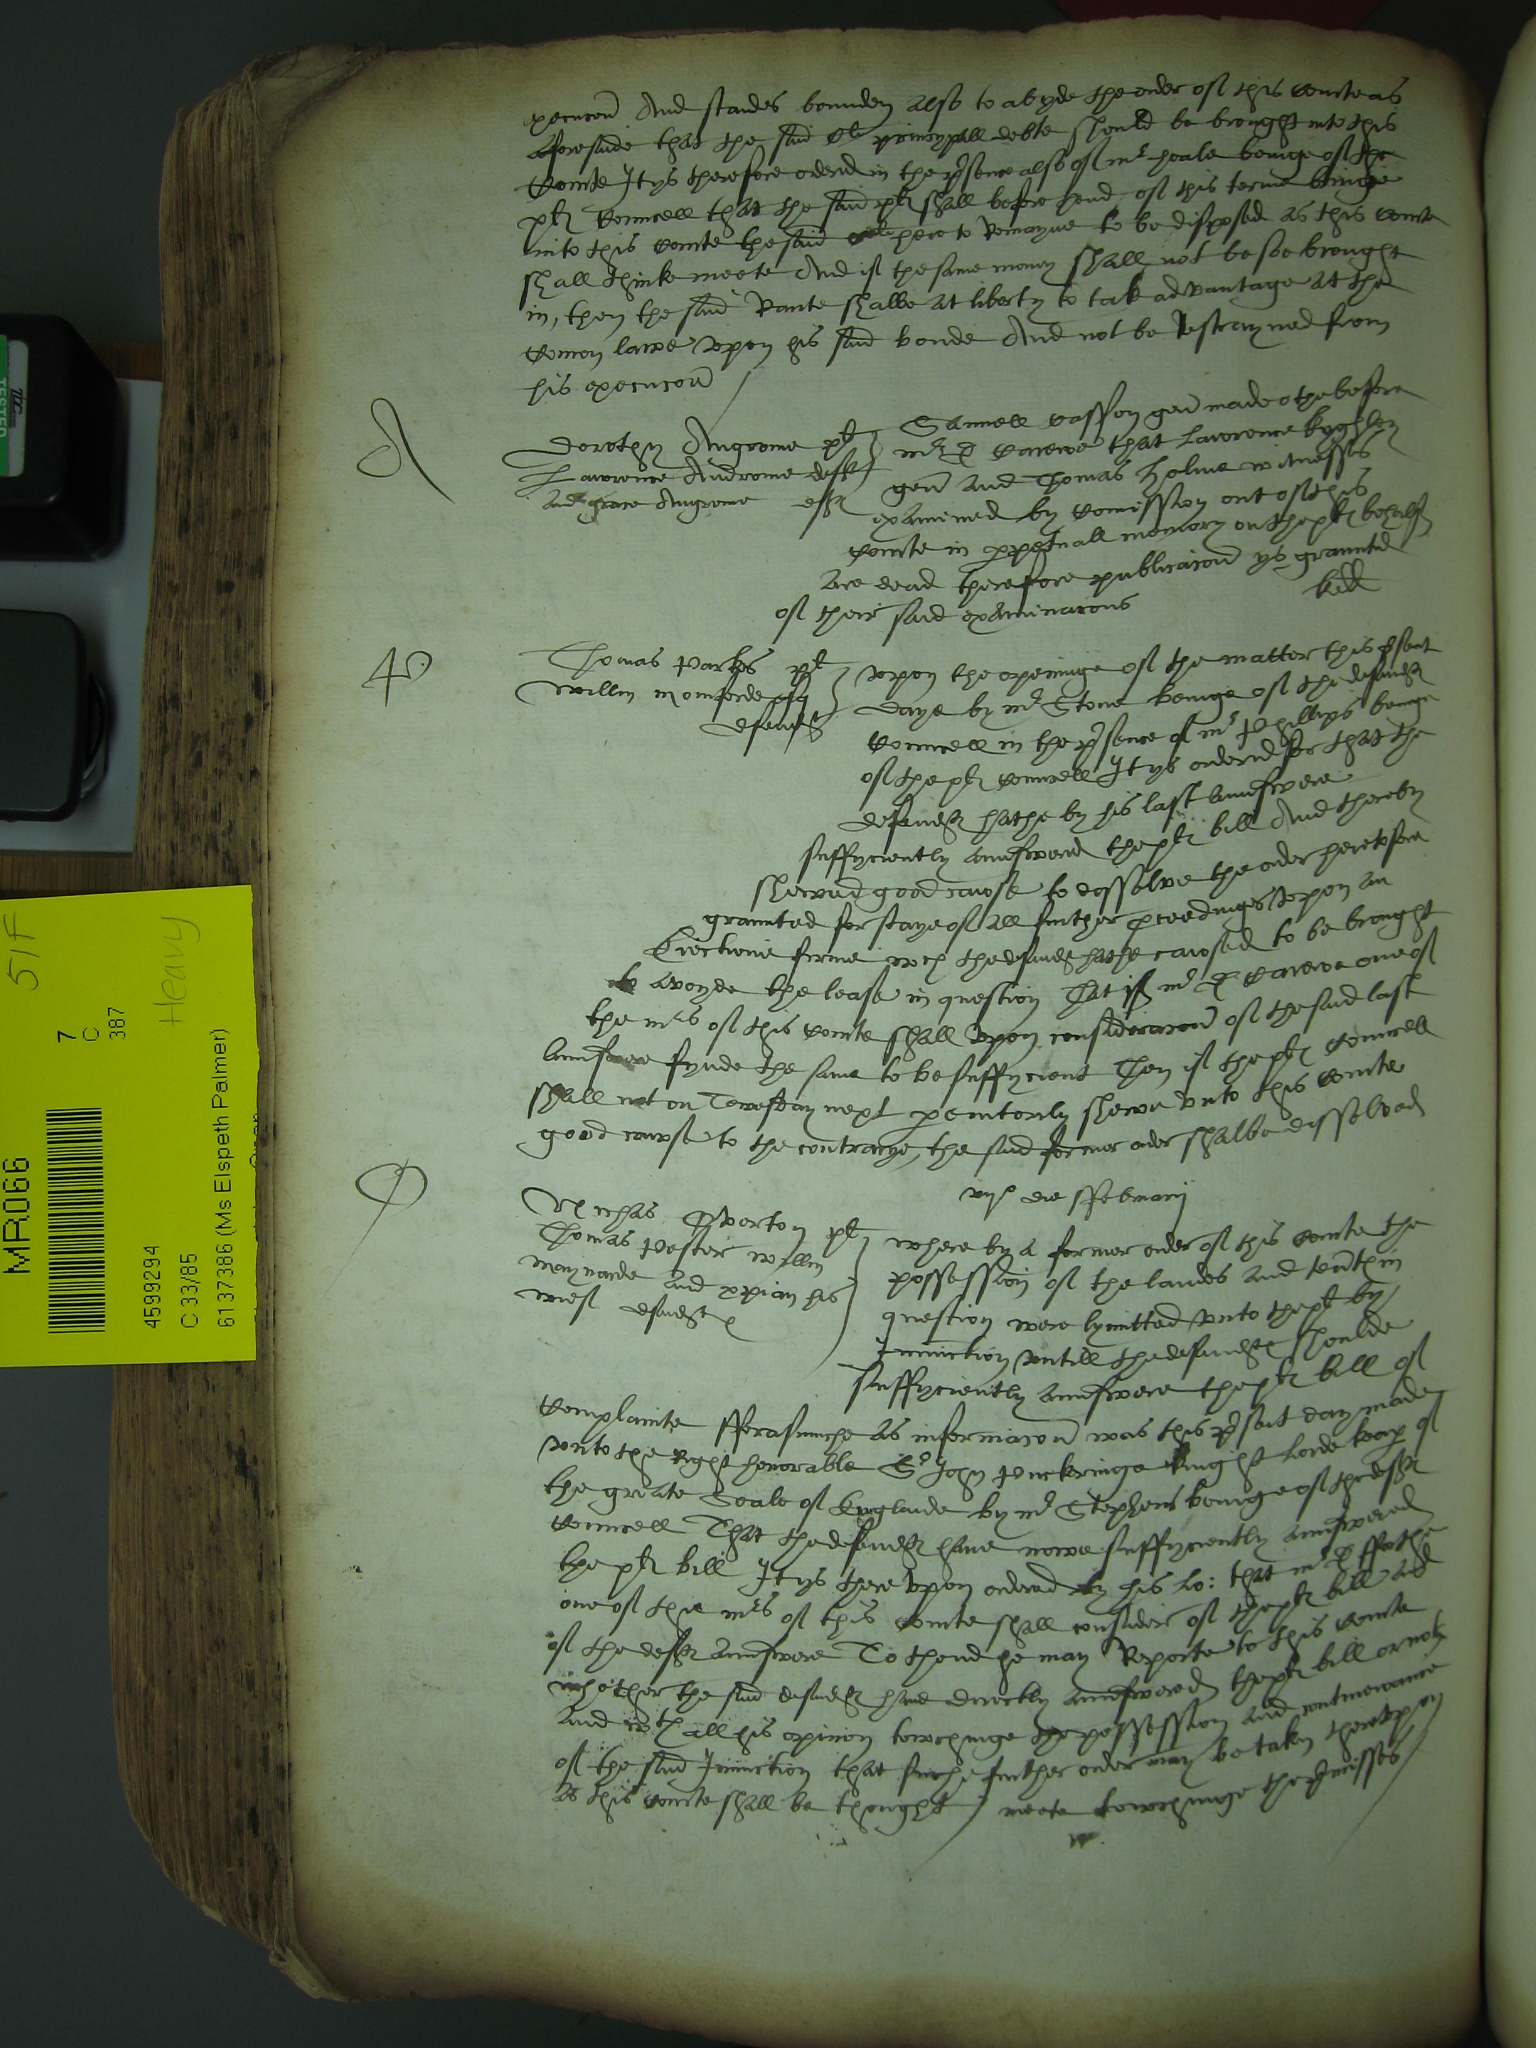 execucon And standes bounden also to abyde the order of this Courte as
aforesaide that the said principall debte should be brought into this
Courte It ys therefore ordered in the p'sence also of mr hoale beinge of the
plt Councell that the said plt shall before thend of this terme bringe
into this Courte the said here to Remayne to be disposed as this Courte
shall thinke meete And if the same money shall not be soe brought
in, then the said Cante shalbe at liberty to tak advantage at the
Comon lawe vpon his said bonde And not be Restrayned from
his execucon
A
Dorothy Angrome plt
Lawrence Androme deft
And grace Angrome
Samuell Casson gen made othe before
mr D Carewe that Lawrence
gen and Thomas Holme witnesses
examined by Comission out of this
Courte in perpetuall memory on the plt behalf
are dead therefore publicacon ys graunted
of their said examinacons
P
Thomas Parkes plt
Willm defendt
Vpon the openinge of the matter this p'sent
daye by mr Stone beinge of the defendt
Councell in the p'sence of mr Phillips beinge
of the plt Councell It ys ordered for that the
defendt hathe by his last Aunswere
sufficyently aunswered the plt bill And thereby
shewed good cawse to dissolve the order heretofore
graunted for staye of all further proceedinges vpon an
Eiectione firme wch the defendt hathe cawsed to be brought
to avoyde the lease in question That if mr D Carewe one of
the mrs of this Courte shall vpon consideracon of the said last
Aunswere fynde the same to be sufficyent Then if the plt Councell
shall not on Tewesday next peremtorily shewe vnto this Courte
good cawse to the contrarye, the said former order shalbe dissolved
vijo die ffebruarij
O
Nichas Overton plt
Thomas Willm
maynarde and his
wief defendts
where by a former order of this Courte the
possession of the landes and tents in
question were lymitted vnto the plt by
Iniunction vntill the defendts shoulde
sufficyently aunswere the plt bill of
Complainte fforasmuche as informacon was this p'sent day made
vnto the Right honorable Sr John Puckeringe knight Lorde keep of
the greate Seale of England by mr Stephens beinge of the deft
Councell That the defendts have nowe sufficyently aunswered
the plt bill It ys there vpon ordered by his Lo: that mr D fforthe
one of the mrs of this Courte shall consider of the plt bill and
of the defts Aunswere To thend he may Reporte to this Courte
whether the said defendts have directly aunswered the plt bill or not
And wth all his opinion towchinge the possession and contynewance
of the said Iniunction that suche further order may be taken therevpon
as this Courte shall be thought meete towchinge the p'misses
MR066
7
C
387
51F
Heavy
4599294
C 33/85
6137386 (Ms Elspeth Palmer)
TESTED